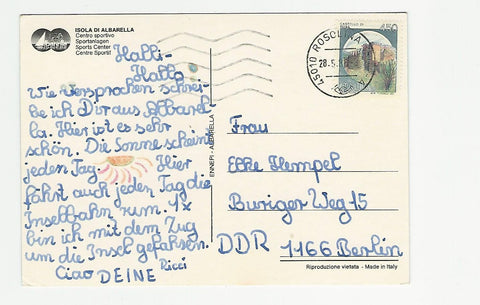 ISOLA DI ALBARELLA
Centro sportivo
Sportanlagen
Sports Center
Centre Sportif
Halli-
Hallo
Wie versprochen schrei-
be ich Dir aus Albarel-
la. Hier ist es sehr
schön. Die Sonne scheint
jeden Tag. Hier
fährt auch jeden Tag die
Inselbahn rum. 1x
bin ich mit dem Zug
um die Insel gefahren.
Ciao DEINE Ricci
ENNEPI - ALBARELLA
45010 ROSOLINA
28.9.
450
Frau
Elke Hempel
Buriger Weg 15
DDR 1166 Berlin
Riproduzione vietata - Made in Italy